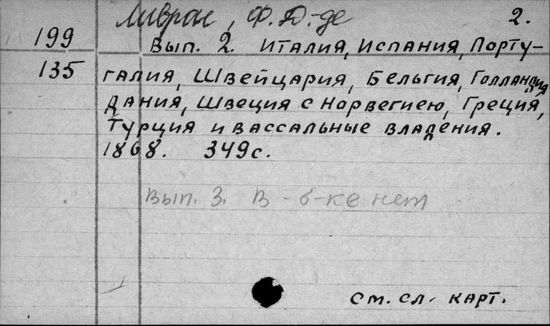 Ливрон, Ф. Д-де 2.
199 Вып. 2. Италия, Испания, Порту-
135 галия, Швейцария, Бельгия, Голландия
Дания, Швеция с Норвегиею, Греция,
Турция и вассальные владения.
1868. 349с.
Вып. 3. В - б-ке нет
См. сл. карт.